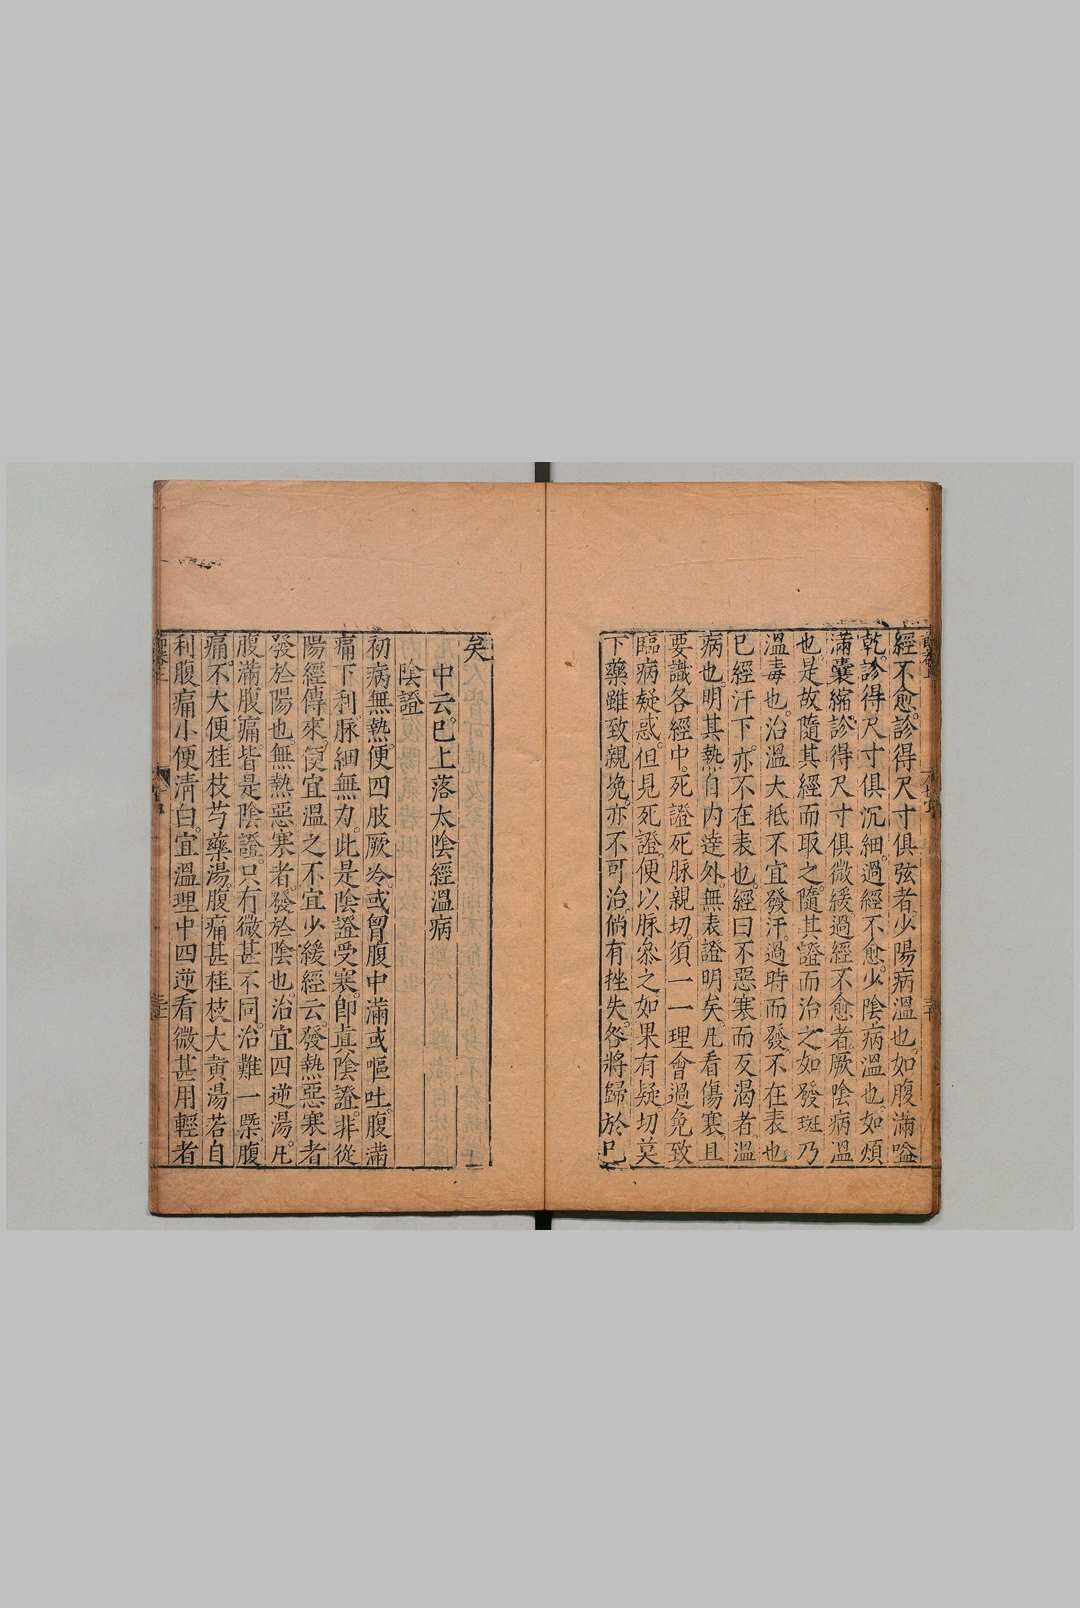 經不愈。診得尺寸俱弦者。少陽病溫也。如腹滿嗌
乾。診得尺寸俱沉細。過經不愈。少陰病溫也。如煩
滿囊縮。診得尺寸俱微緩。過經不愈者。厥陰病溫
也。是故隨其經而取之。隨其證而治之。如發斑乃
溫毒也。治溫大抵不宜發汗。過時而發。不在表也
已經汗下。亦不在表也。經曰不惡寒而反渴者。溫
病也。明其熱自內達外。無表證明矣。凡看傷寒。且
要識各經中。死證死脉親切。須一一理會過。免致
臨病疑惑。但見死證。便以脉叅之。如果有疑。切莫
下藥。雖致親挽。亦不可治。倘有挫失。咎將歸於已
矣
中云。已上落太陰經溫病
陰證
初病無熱。便四肢厥冷。或曾腹中滿或嘔吐。腹滿
痛下利。脉細無力。此是陰證受寒。卽眞陰證。非從
陽經傳來。便宜溫之不宜少緩。經云。發熱惡寒者
發於陽也。無熱惡寒者。發於陰也。治宜四逆湯。凡
腹滿腹痛。皆是陰證。只有微甚不同。治難一槩腹
痛。不大便。桂枝芍藥湯。腹痛甚。桂枝大黃湯。若自
利腹痛。小便淸白。宜溫理中四逆看微甚用輕者